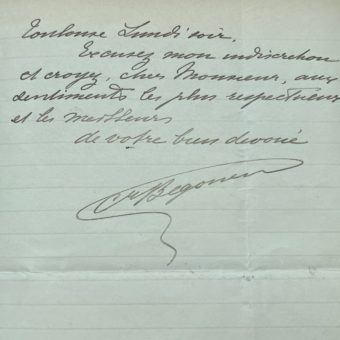 Toulouse Lundi soir.
Excusez mon indiscretion
et croyez, cher Monsieur, aux
sentiments les plus respectueux
et les meilleurs
de votre bien devoué
Cte Begouen